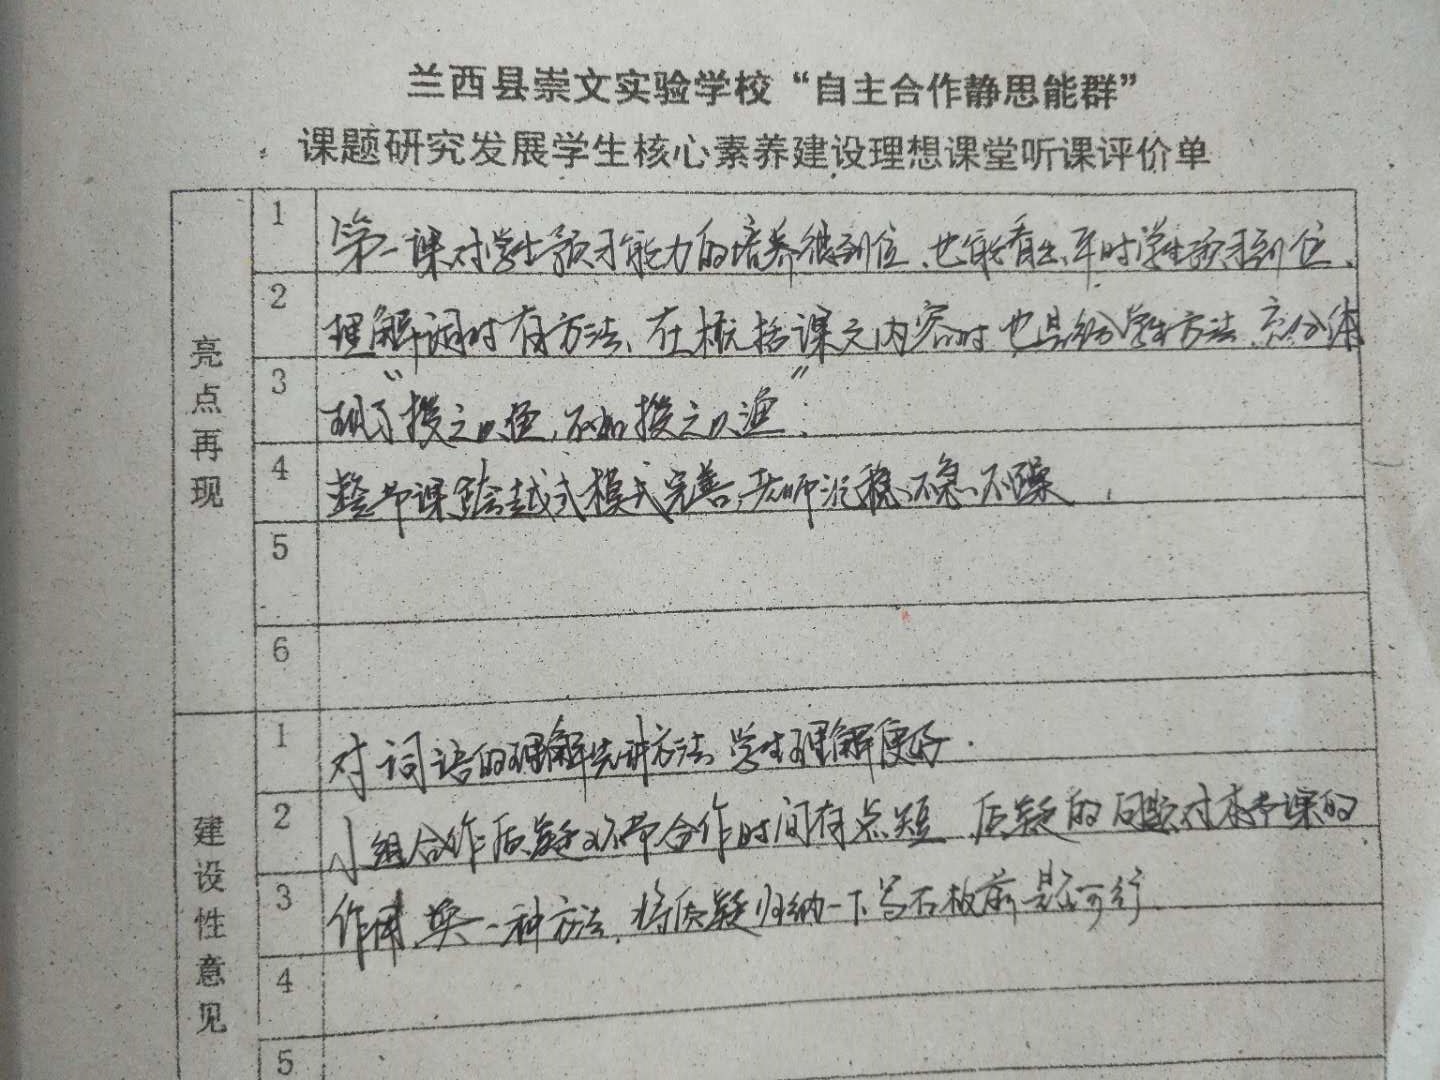 兰西县崇文实验学校“自主合作静思能群”
课题研究发展学生核心素养建设理想课堂听课评价单
亮点再现
1 第一课对学生预习能力的培养很到位、也能看出平时学生预习到位、
2 理解词时有方法、在概括课文内容时也是给学生方法、充分体
3 现了“授之以鱼,不如授之以渔”;
4 整节课跨越式模式完善,老师沉稳、不急、不躁.
5
6
建设性意见
1 对词语的理解先讲方法、学生理解便好.
2 小组合作质疑环节合作时间有点短、质疑的问题对本节课的
3 作用、换一种方法,将质疑归纳一下写在板前是否可行.
4
5